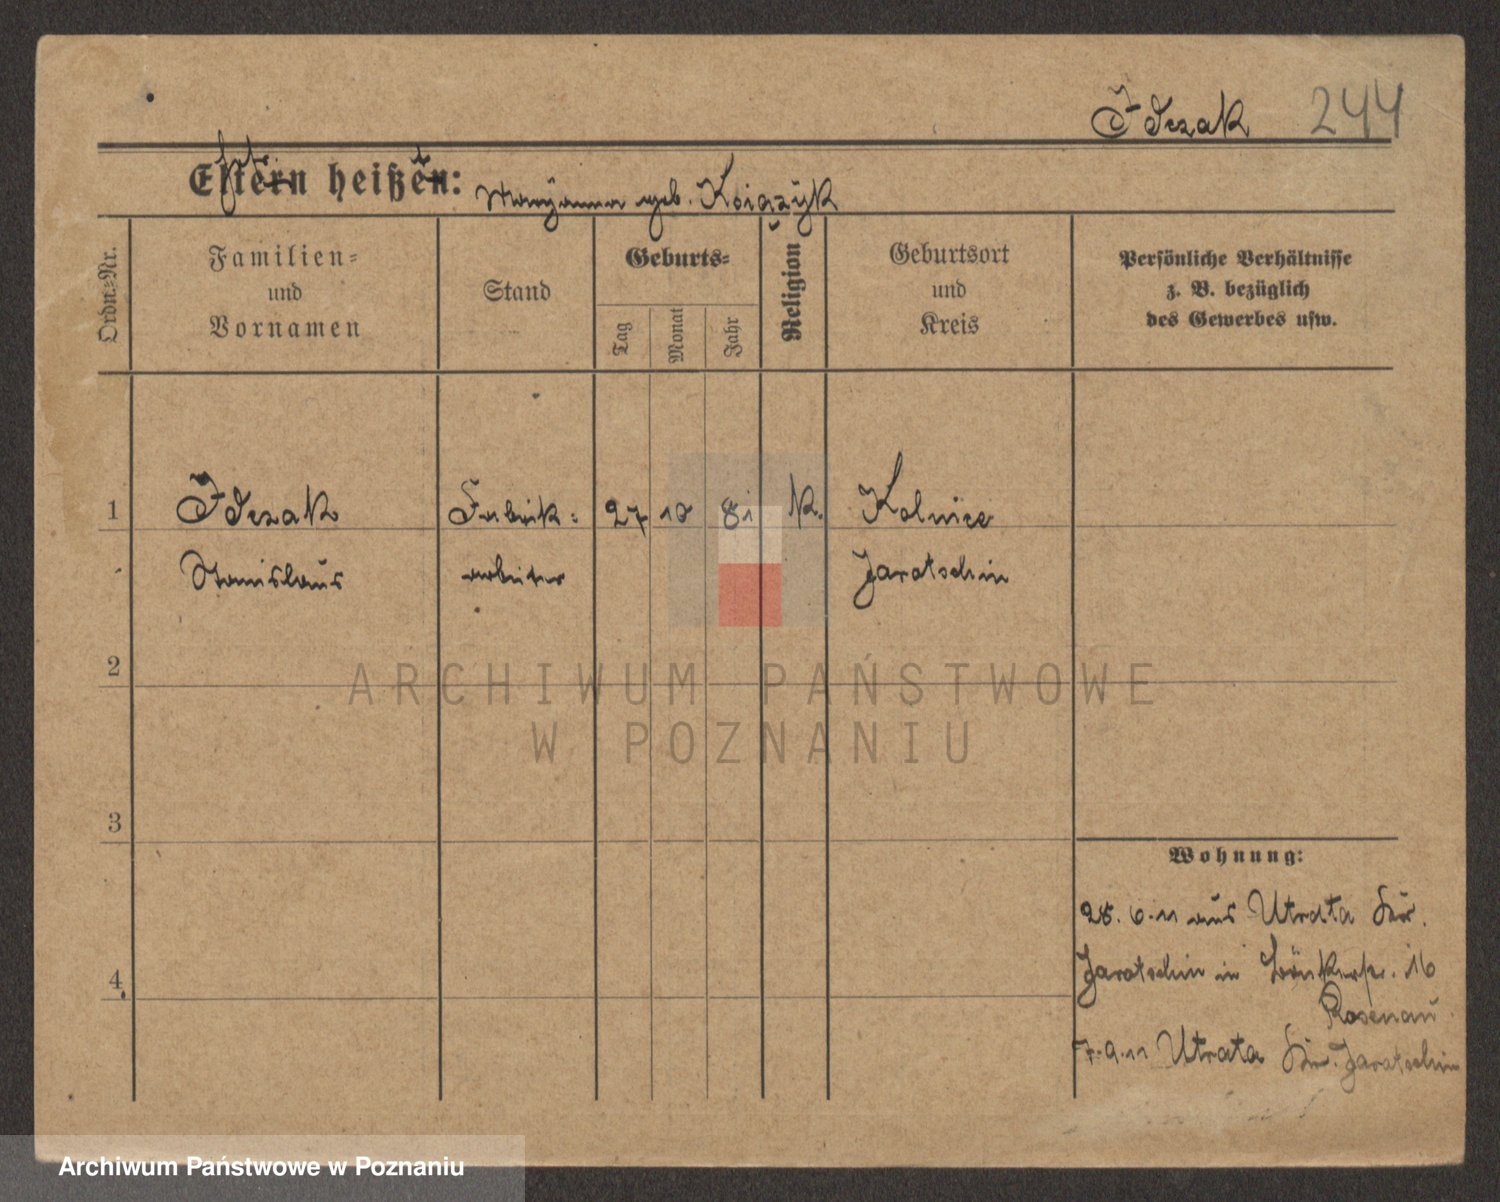 Idczak 244
Eltern heißen: Maryanna geb. Książyk
Ordn.-Nr.
Familien-
und
Vornamen
Stand
Geburts-
Tag
Monat
Jahr
Religion
Geburtsort
und
Kreis
Persönliche Verhältnisse
z. B. bezüglich
des Gewerbes usw.
1 Idczak Fabrik- 27 10 81 K. Kolnice
Stanislaus arbeiter Jaratschin
2
3
4
Wohnung:
28. 6. 11 aus Utrata Kr.
Jaratschin in 16
Rosenau
7. 9. 11 Utrata Kr. Jaratschin
ARCHIWUM PAŃSTWOWE
W POZNANIU
Archiwum Państwowe w Poznaniu